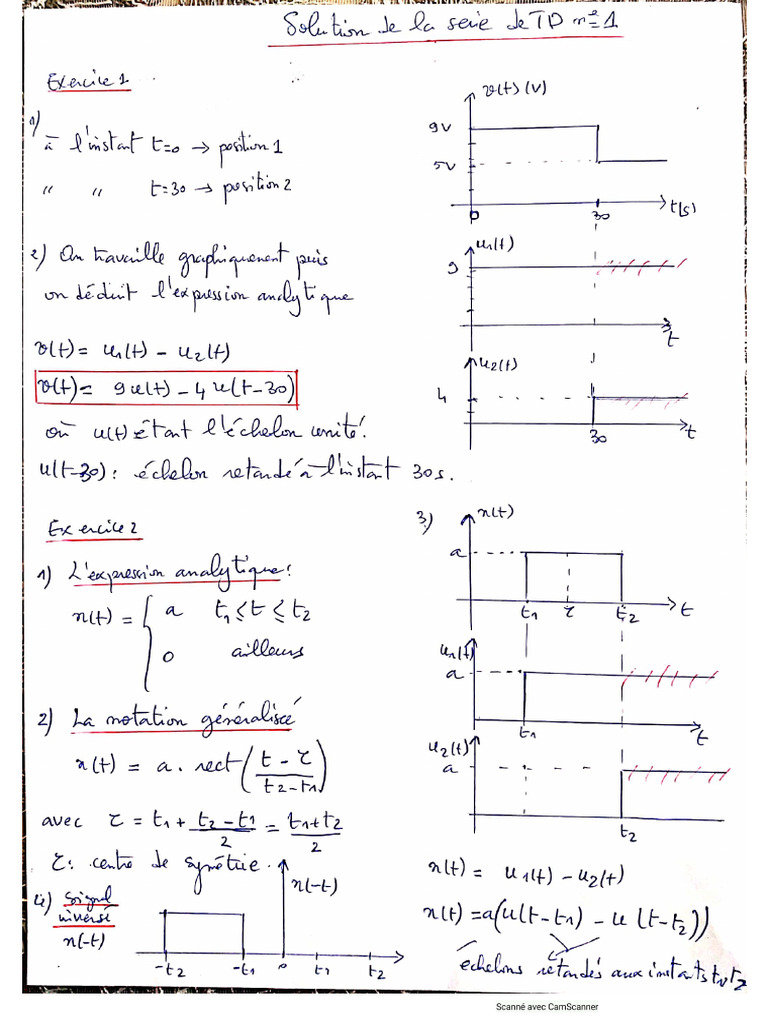 Solution de la serie de TD n° 1
Exercice 1
1)
à l'instant t=0 → position 1
" " t=30 → position 2
v(t) (V)
9V
5V
0
30
t(s)
2) On travaille graphiquement puis
on déduit l'expression analytique
v(t) = u1(t) - u2(t)
v(t) = 9u(t) - 4u(t-30)
où u(t) étant l'échelon unité.
u(t-30) : échelon retardé à l'instant 30s.
u1(t)
9
t
u2(t)
4
30
t
Exercice 2
1) L'expression analytique:
x(t) = { a t1 ≤ t ≤ t2
0 ailleurs
2) La notation généralisé
x(t) = a. rect((t - τ)/(t2-t1))
avec τ = t1 + (t2-t1)/2 = (t1+t2)/2
τ: centre de symétrie.
4) Signal
inversé
x(-t)
x(-t)
-t2
-t1
0
t1
t2
3)
x(t)
a
t1
τ
t2
t
u1(t)
a
t1
t
u2(t)
a
t2
x(t) = u1(t) - u2(t)
x(t) = a(u(t-t1) - u(t-t2))
échelons retardés aux instants t1, t2
Scanné avec CamScanner